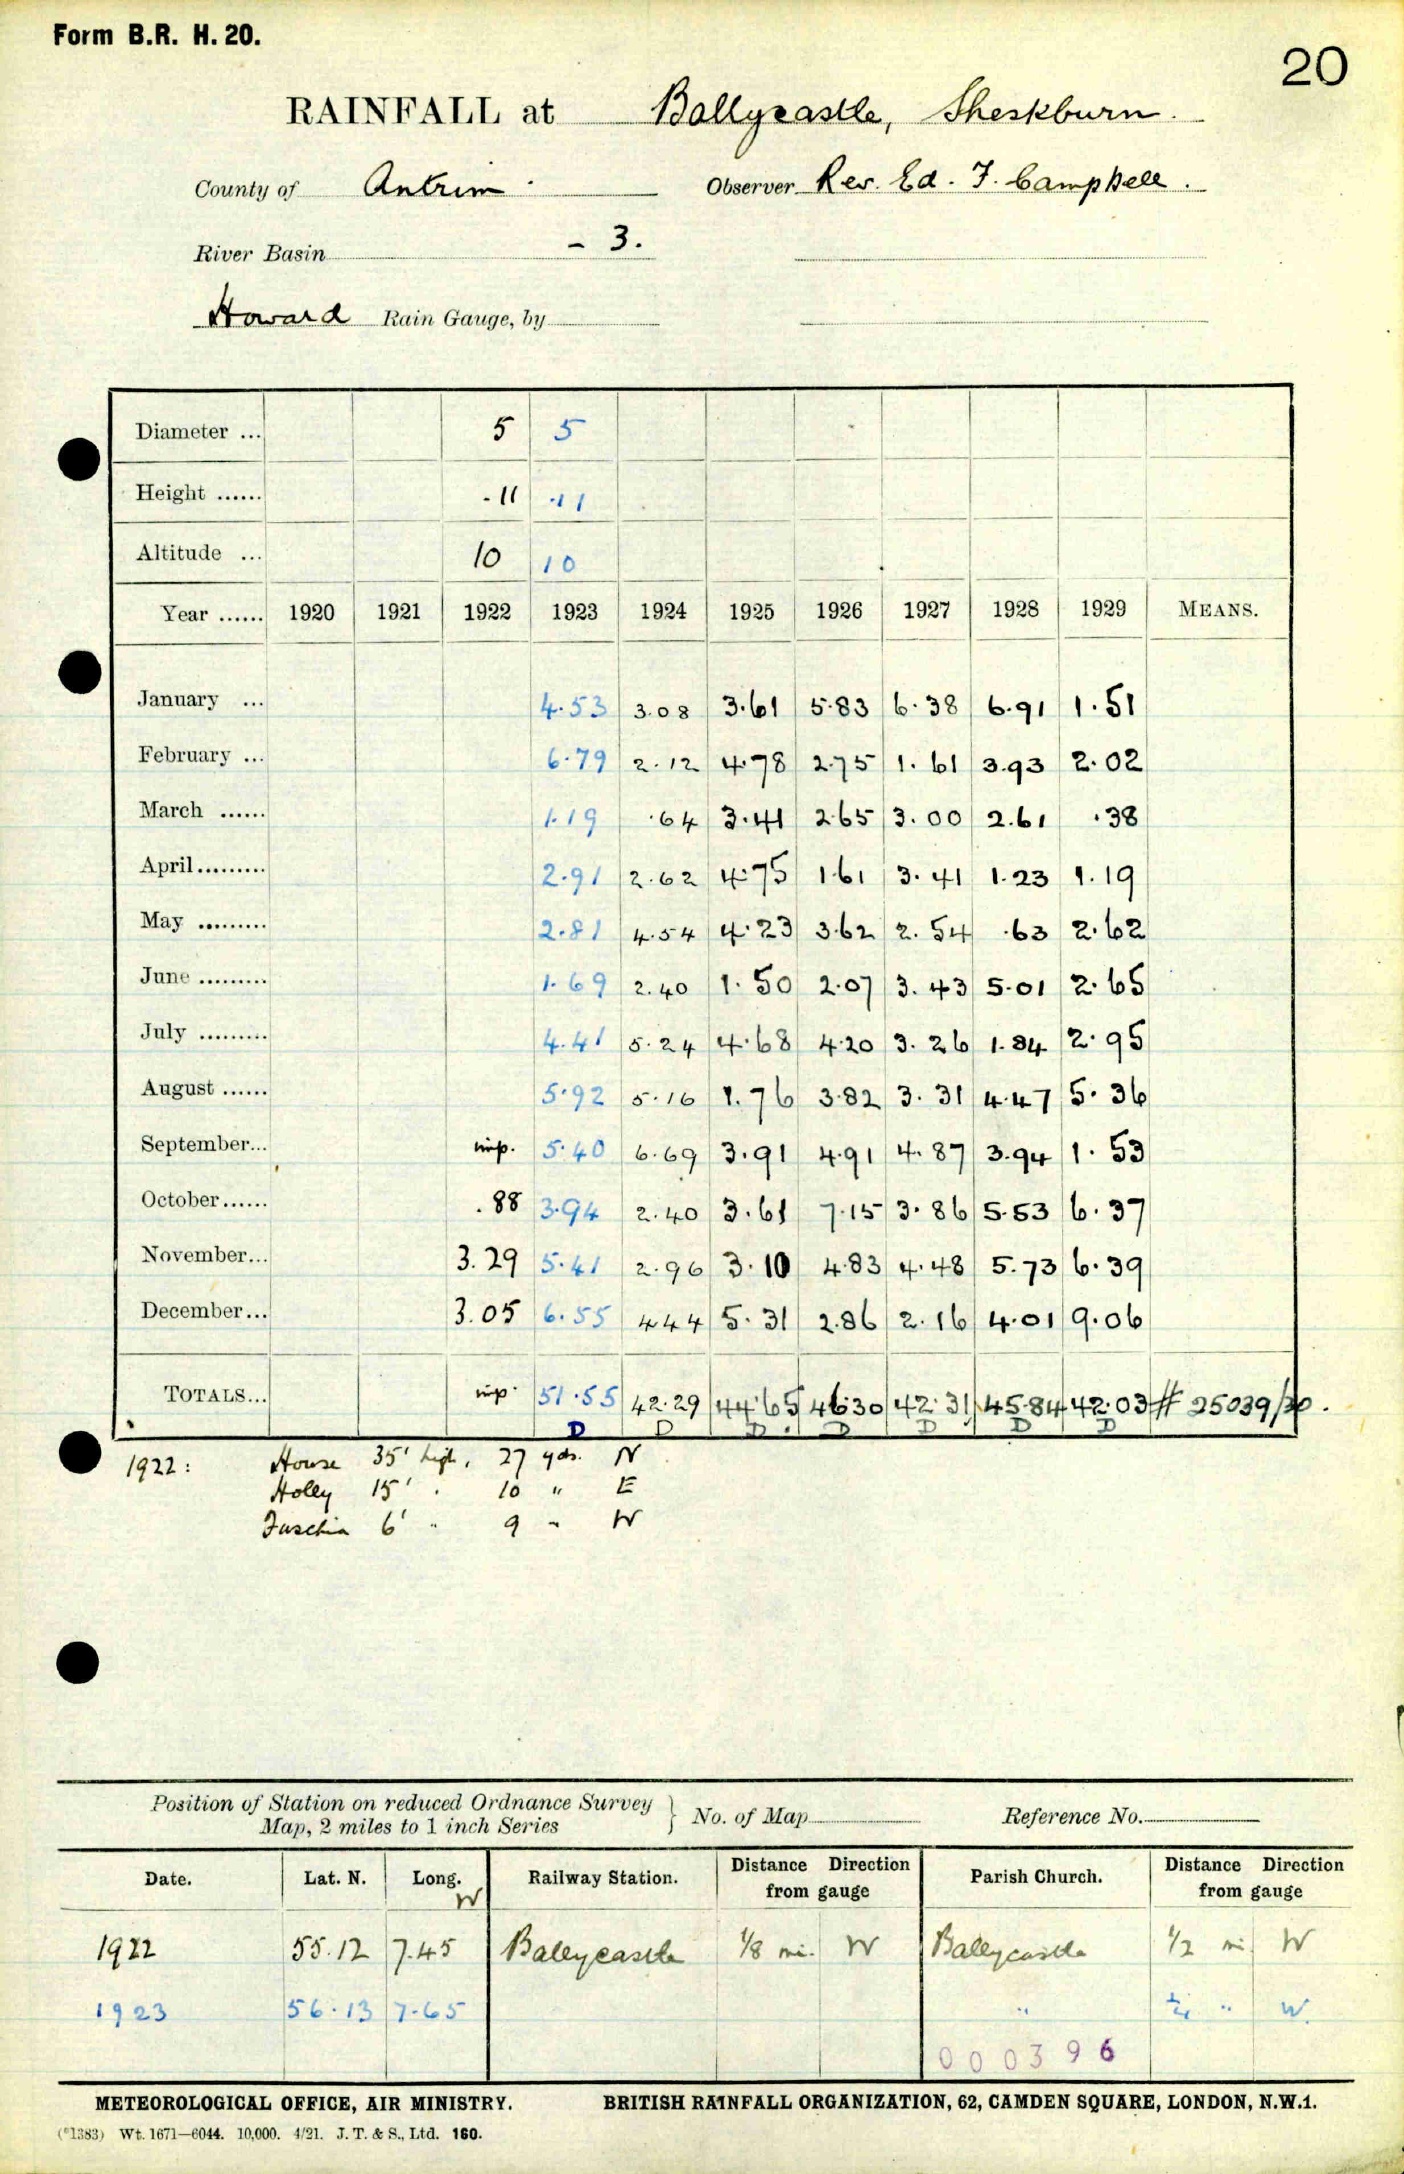 Form B.R. H. 20.
20
RAINFALL at Ballycastle, Sheskburn.
County of Antrim. Observer Rev. Ed. F. Campbell.
River Basin - 3.
Howard Rain Gauge, by
Diameter ... 5 5
Height ...... .11 .11
Altitude ... 10 10
Year ...... 1920 1921 1922 1923 1924 1925 1926 1927 1928 1929 MEANS.
January ... 4.53 3.08 3.61 5.83 6.38 6.91 1.51
February ... 6.79 2.12 4.78 2.75 1.61 3.93 2.02
March ...... 1.19 .64 3.41 2.65 3.00 2.61 .38
April ......... 2.91 2.62 4.75 1.61 3.41 1.23 1.19
May ......... 2.81 4.54 4.23 3.62 2.54 .63 2.62
June ......... 1.69 2.40 1.50 2.07 3.43 5.01 2.65
July ......... 4.41 5.24 4.68 4.20 3.26 1.84 2.95
August ...... 5.92 5.16 1.76 3.82 3.31 4.47 5.36
September... imp. 5.40 6.69 3.91 4.91 4.87 3.94 1.53
October...... .88 3.94 2.40 3.61 7.15 3.86 5.53 6.37
November... 3.29 5.41 2.96 3.10 4.83 4.48 5.73 6.39
December... 3.05 6.55 4.44 5.31 2.86 2.16 4.01 9.06
TOTALS... imp. 51.55 42.29 44.65 46.30 42.31 45.84 42.03 # 25039/30.
D D D. D D D D
1922: House 35' high, 27 yds. N
Holly 15' " 10 " E
Fuschia 6' " 9 " W
Position of Station on reduced Ordnance Survey Map, 2 miles to 1 inch Series } No. of Map Reference No.
Date. Lat. N. Long. W Railway Station. Distance Direction from gauge Parish Church. Distance Direction from gauge
1922 55.12 7.45 Ballycastle 1/8 mi. W Ballycastle 1/2 mi W
1923 56.13 7.65 " 1/4 " W.
000396
METEOROLOGICAL OFFICE, AIR MINISTRY. BRITISH RAINFALL ORGANIZATION, 62, CAMDEN SQUARE, LONDON, N.W.1.
(*1383) Wt. 1671—6044. 10,000. 4/21. J. T. & S., Ltd. 160.